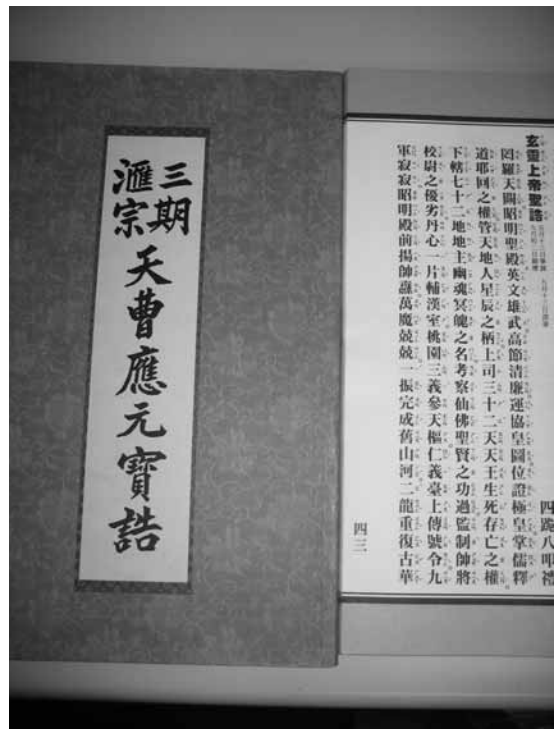 三期
滙宗
天曹應元寶誥
玄靈上帝聖誥
四跪八叩禮
罔羅天闕昭明聖殿英文雄武高節清廉運協皇圖位證極皇掌儒釋
道耶回之權管天地人星辰之柄上司三十二天天王生死存亡之權
下轄七十二地地主幽魂冥魄之名考察仙佛聖賢之功過監制帥將
校尉之優劣丹心一片輔漢室桃園三義參天樞仁義臺上傳號令九
軍寂寂昭明殿前揚帥纛萬魔兢兢一振完成舊山河二龍重復古華
四三